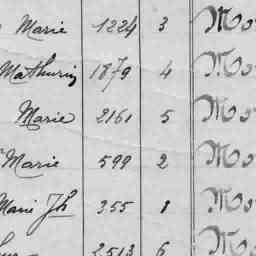 Marie 1224 3 Mo
Mathurin 1879 4 Mo
Marie 2161 5 Mo
Marie 599 2 Mo
Marie Jh 355 1 Mo
2513 6 Mo